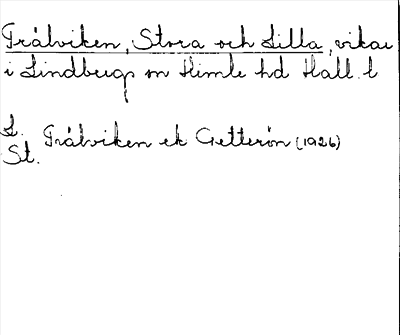 Trälviken, Stora och Lilla, vikar
i Lindbergs sn Himle hd Hall. l
L.
St. Trälviken ek Getterön (1926)